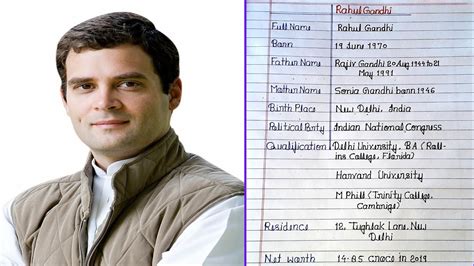 Rahul Gandhi
Full Name Rahul Gandhi
Bann 19 June 1970
Fathur Name Rajiv Gandhi 20 Aug 1944 to 21
May 1991
Mathur Name Sonia Gandhi bann 1946
Birth Place New Delhi, India
Political Party Indian National Congress
Qualification Delhi University, BA (Roll-
ins College, Florida)
Harvard University
M Phill (Trinity College,
Cambrige)
Residence 12, Tughlak Lane, New
Delhi
Net worth 14.85 crores in 2019